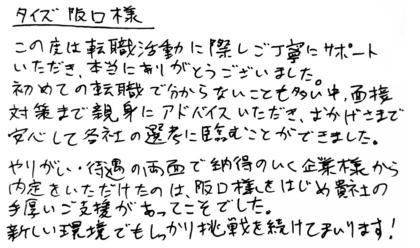 タイズ 阪口様
この度は転職活動に際しご丁寧にサポート
いただき、本当にありがとうございました。
初めての転職で分からないことも多い中、面接
対策まで親身にアドバイスいただき、おかげさまで
安心して各社の選考に臨むことができました。
やりがい・待遇の両面で納得のいく企業様から
内定をいただけたのは、阪口様をはじめ貴社の
手厚いご支援があってこそでした。
新しい環境でもしっかり挑戦を続けてまいります!